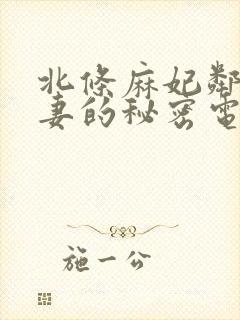 北條麻妃鄰
妻的秘密電
施一公